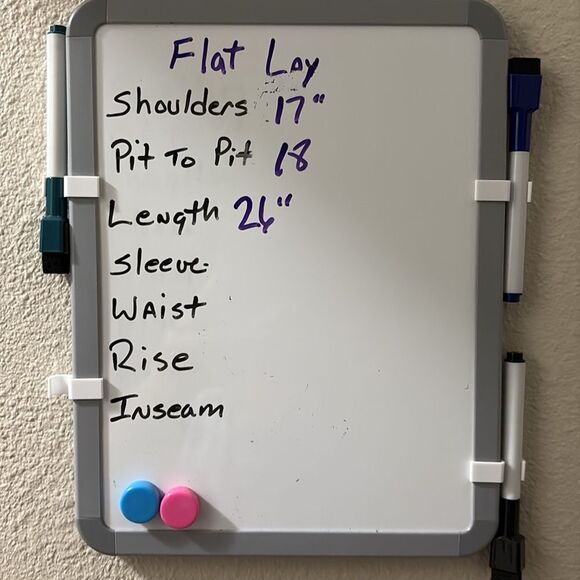 Flat Lay
Shoulders 17"
Pit To Pit 18
Length 26"
Sleeve
Waist
Rise
Inseam